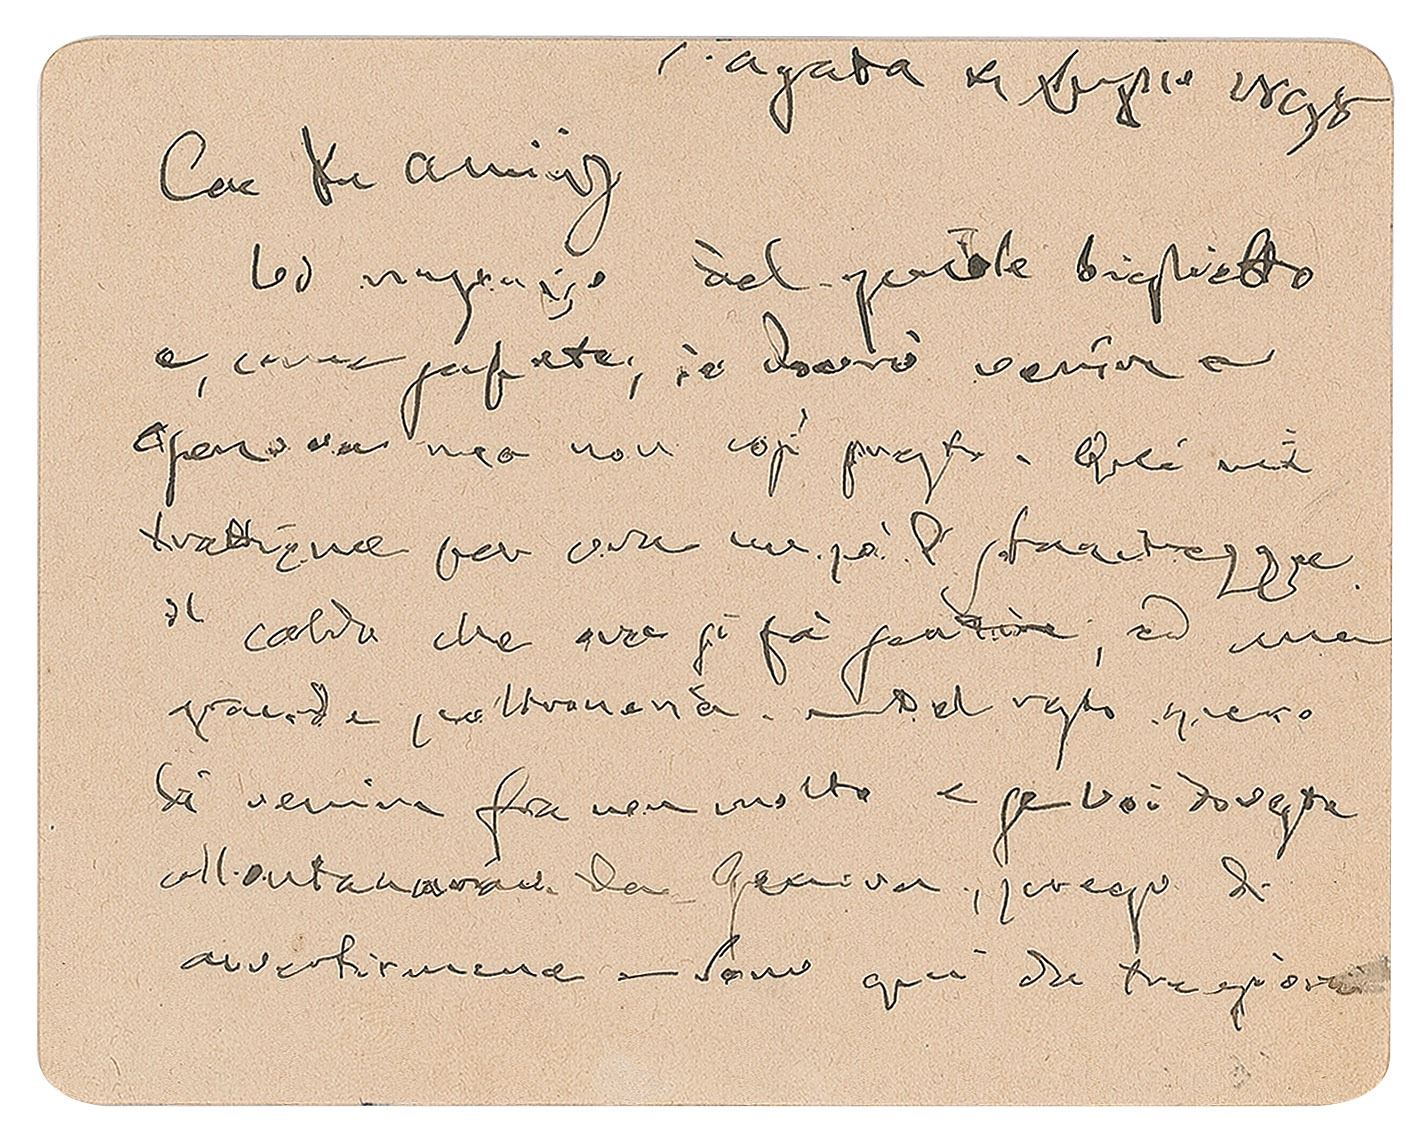 S. Agata Luglio 1898
Car Mo Amico
Vi ringrazio del gentile biglietto
e, come sapete, io dovrò venire a
Genova ma non così presto. Qui mi
trattiene per ora un pò l'
il caldo che ora si fà sentire, ed una
grande poltroneria. — Del resto spero
di venire fra non molto e se Voi doveste
allontanarvi da Genova, prego di
avvertirmene — Sono quì da tre giorni